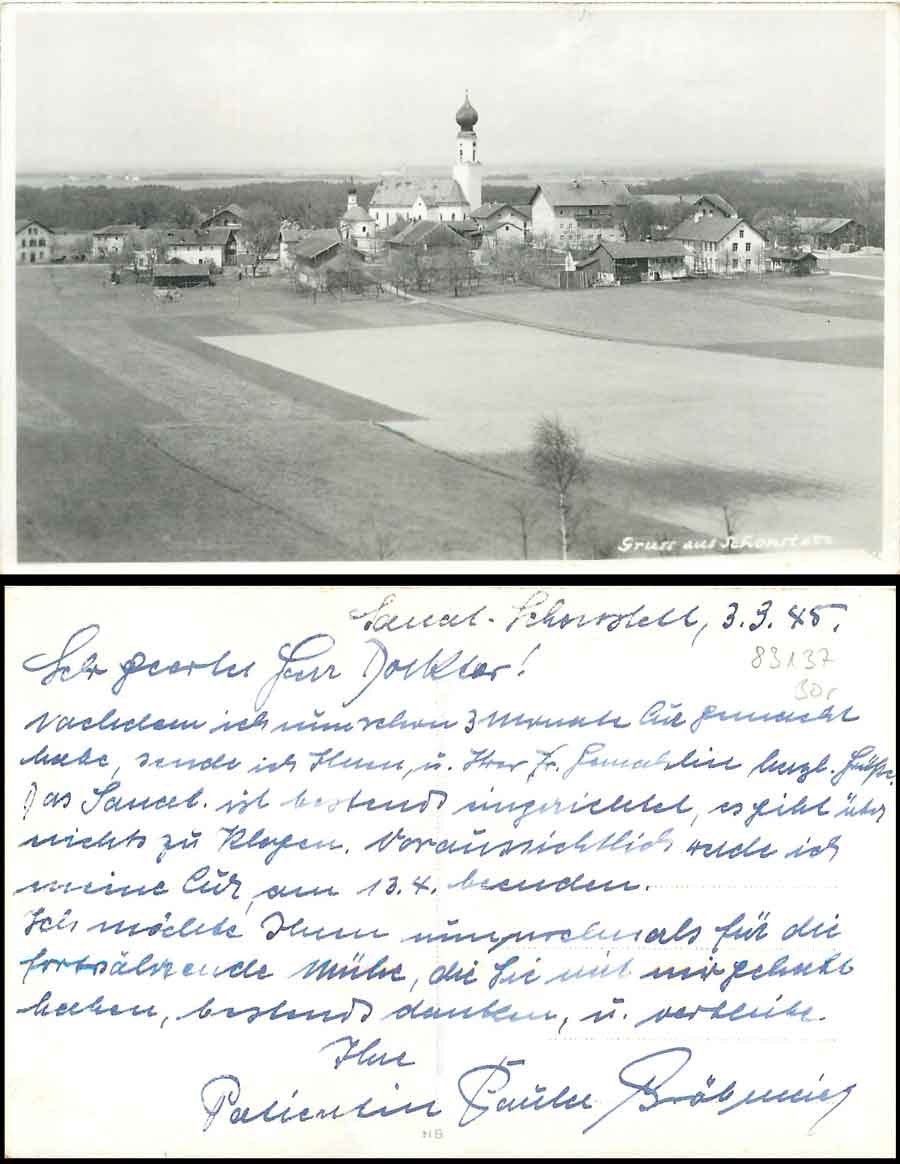 Gruss aus Schonstett
Sanat. Schonstett, 3.3.45.
83137
30,
Sehr geerter Herr Doktor!
Nachdem ich nun schon 3 Monate Cur gemacht
habe, sende ich Ihnen, u. Ihrer Fr. Gemahlin herzl. Grüße.
Das Sanat. ist bestends eingerichtet, es gibt über
nichts zu klagen. Voraussichtlich werde ich
meine Cur, am 13.4. beenden.
Ich möchte Ihnen nun nochmals für die
Mühe, die Sie mit mir gehabt
haben, bestends danken, u. verbleibe.
Ihre
Patientin